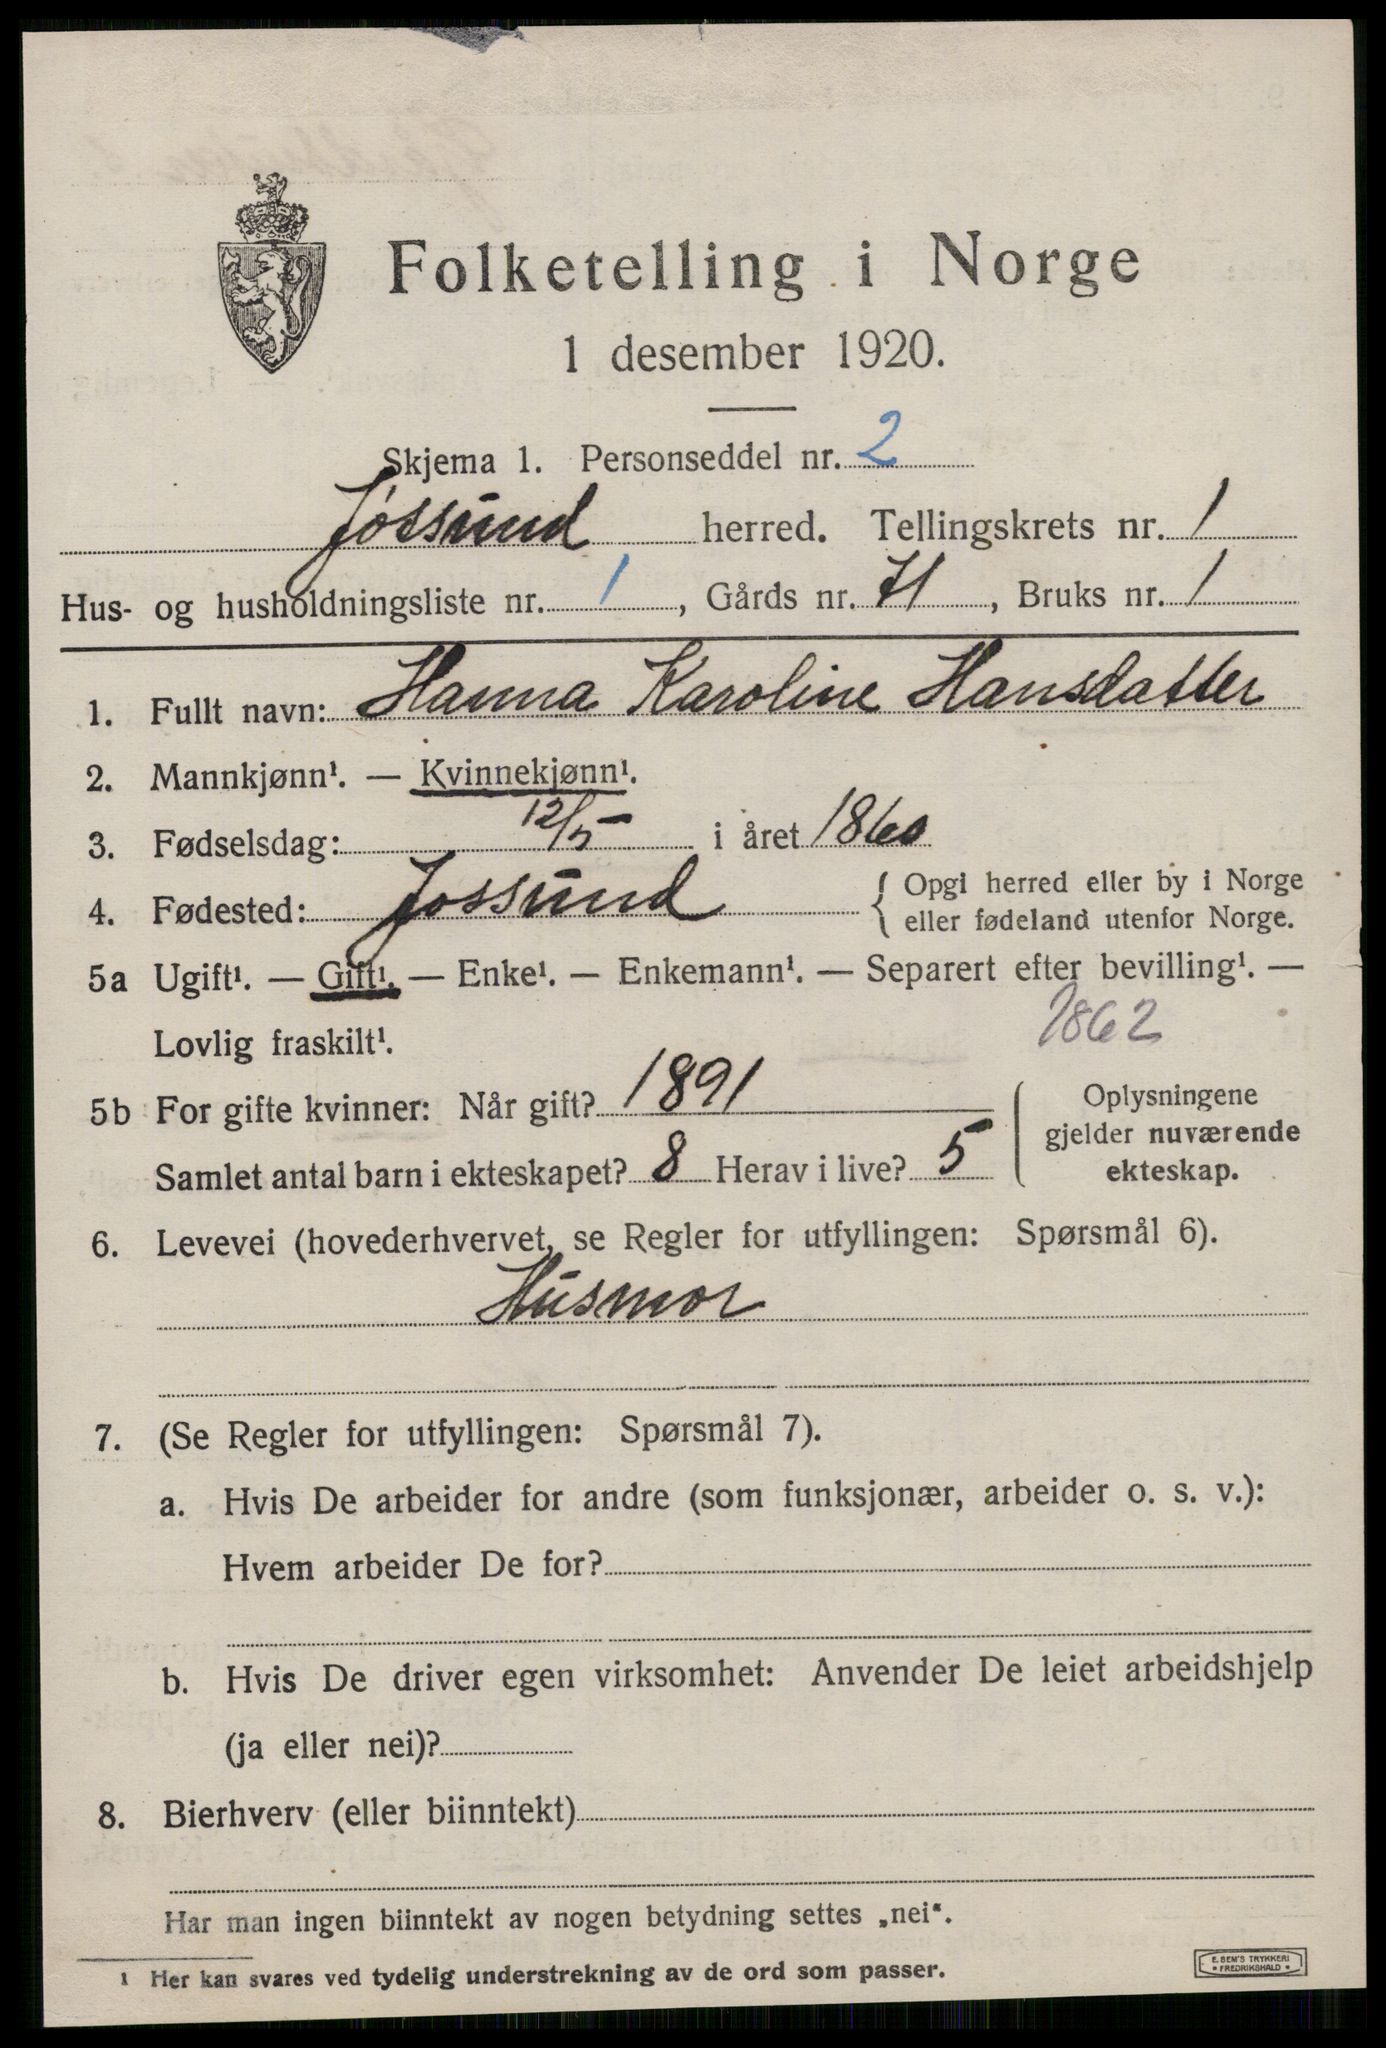 Folketelling i Norge
1 desember 1920.
Skjema 1. Personseddel nr. 2
Jøssund herred. Tellingskrets nr. 1
Hus- og husholdningsliste nr. 1, Gårds nr. 71, Bruks nr. 1
1. Fullt navn: Hanna Karoline Hansdatter
2. Mannkjønn¹. — Kvinnekjønn¹.
3. Fødselsdag: 12/5 i året 1860
4. Fødested: Jossund { Opgi herred eller by i Norge
eller fødeland utenfor Norge.
5a Ugift¹. — Gift¹. — Enke¹. — Enkemann¹. — Separert efter bevilling¹. —
Lovlig fraskilt¹. 1862
5b For gifte kvinner: Når gift? 1891
Samlet antal barn i ekteskapet? 8 Herav i live? 5
Oplysningene
gjelder nuværende
ekteskap.
6. Levevei (hovederhvervet, se Regler for utfyllingen: Spørsmål 6).
Husmor
7. (Se Regler for utfyllingen: Spørsmål 7).
a. Hvis De arbeider for andre (som funksjonær, arbeider o. s. v.):
Hvem arbeider De for?
b. Hvis De driver egen virksomhet: Anvender De leiet arbeidshjelp
(ja eller nei)?
8. Bierhverv (eller biinntekt)
Har man ingen biinntekt av nogen betydning settes „nei".
¹ Her kan svares ved tydelig understrekning av de ord som passer.
E. SEM'S TRYKKERI
* FREDRIKSHALD *